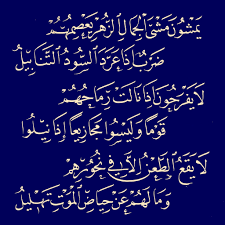 يَمْشُونَ مَشْيَ الْجِمَالِ الزُّهْرِ يَعْصِمُهُمْ
ضَرْبٌ إِذَا عَرَّدَ السُّودُ التَّنَابِيلُ
لَا يَفْرَحُونَ إِذَا نَالَتْ رِمَاحُهُمُ
قَوْمًا وَلَيْسُوا مَجَازِيعًا إِذَا نِيلُوا
لَا يَقَعُ الطَّعْنُ إِلَّا فِي نُحُورِهِمُ
وَمَا لَهُمْ عَنْ حِيَاضِ الْمَوْتِ تَهْلِيلُ